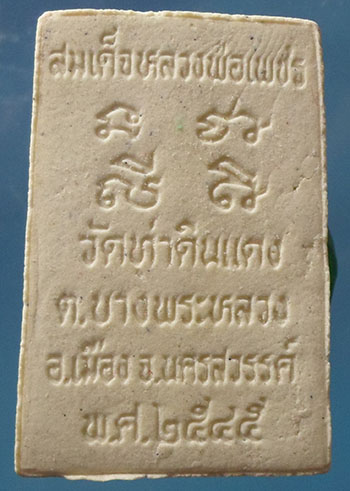 สมเด็จหลวงพ่อเพชร
วัดท่าดินแดง
ต.บางพระหลวง
อ.เมือง จ.นครสวรรค์
พ.ศ.๒๕๔๕